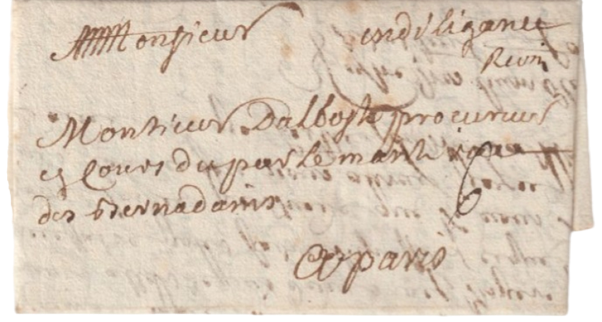 Monsieur en diligance
Monsieur Dalboste procureur
en Cour du parlement
des bernadains
A paris